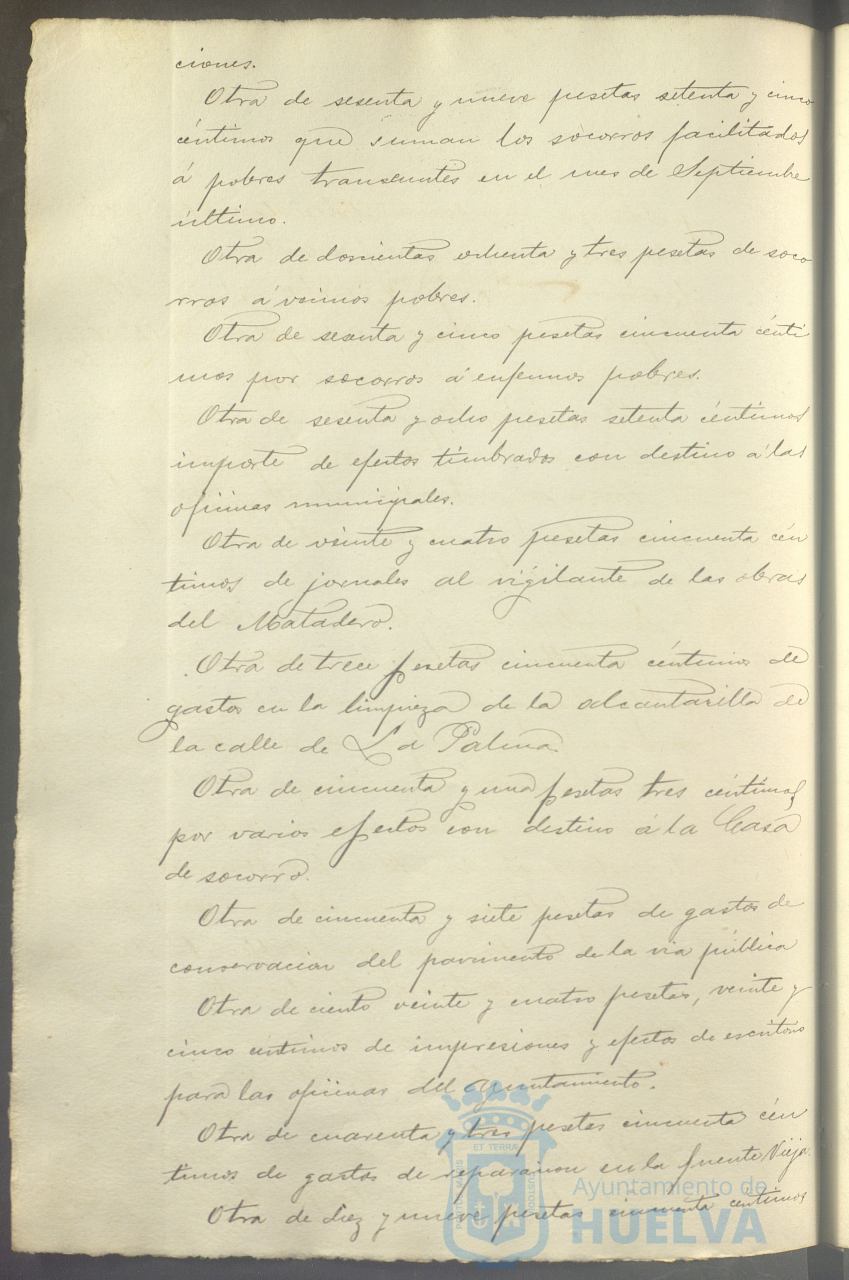 ciones.
Otra de sesenta y nueve pesetas setenta y cinco
céntimos que suman los socorros facilitados
á pobres transeuntes en el mes de Septiembre
último.
Otra de doscientas ochenta y tres pesetas de soco
rros á vecinos pobres.
Otra de sesenta y cinco pesetas cincuenta cénti
mos por socorros á enfermos pobres.
Otra de sesenta y ocho pesetas setenta céntimos
importe de efectos timbrados con destino á las
oficinas municipales.
Otra de veinte y cuatro pesetas cincuenta cén
timos de jornales al vigilante de las obras
del Matadero.
Otra de trece pesetas cincuenta céntimos de
gastos en la limpieza de la alcantarilla de
la calle de La Palma.
Otra de cincuenta y una pesetas tres céntimos
por varios efectos con destino á la Casa
de socorro.
Otra de cincuenta y siete pesetas de gastos de
conservacion del pavimento de la via pública
Otra de ciento veinte y cuatro pesetas, veinte y
cinco céntimos de impresiones y efectos de escritorio
para las oficinas del Ayuntamiento.
Otra de cuarenta y tres pesetas cincuenta cén
timos de gastos de reparacion en la fuente Vieja.
Otra de diez y nueve pesetas cincuenta céntimos
PORTUS MARIS
ET TERRÆ
CUSTODIA
Ayuntamiento de
HUELVA